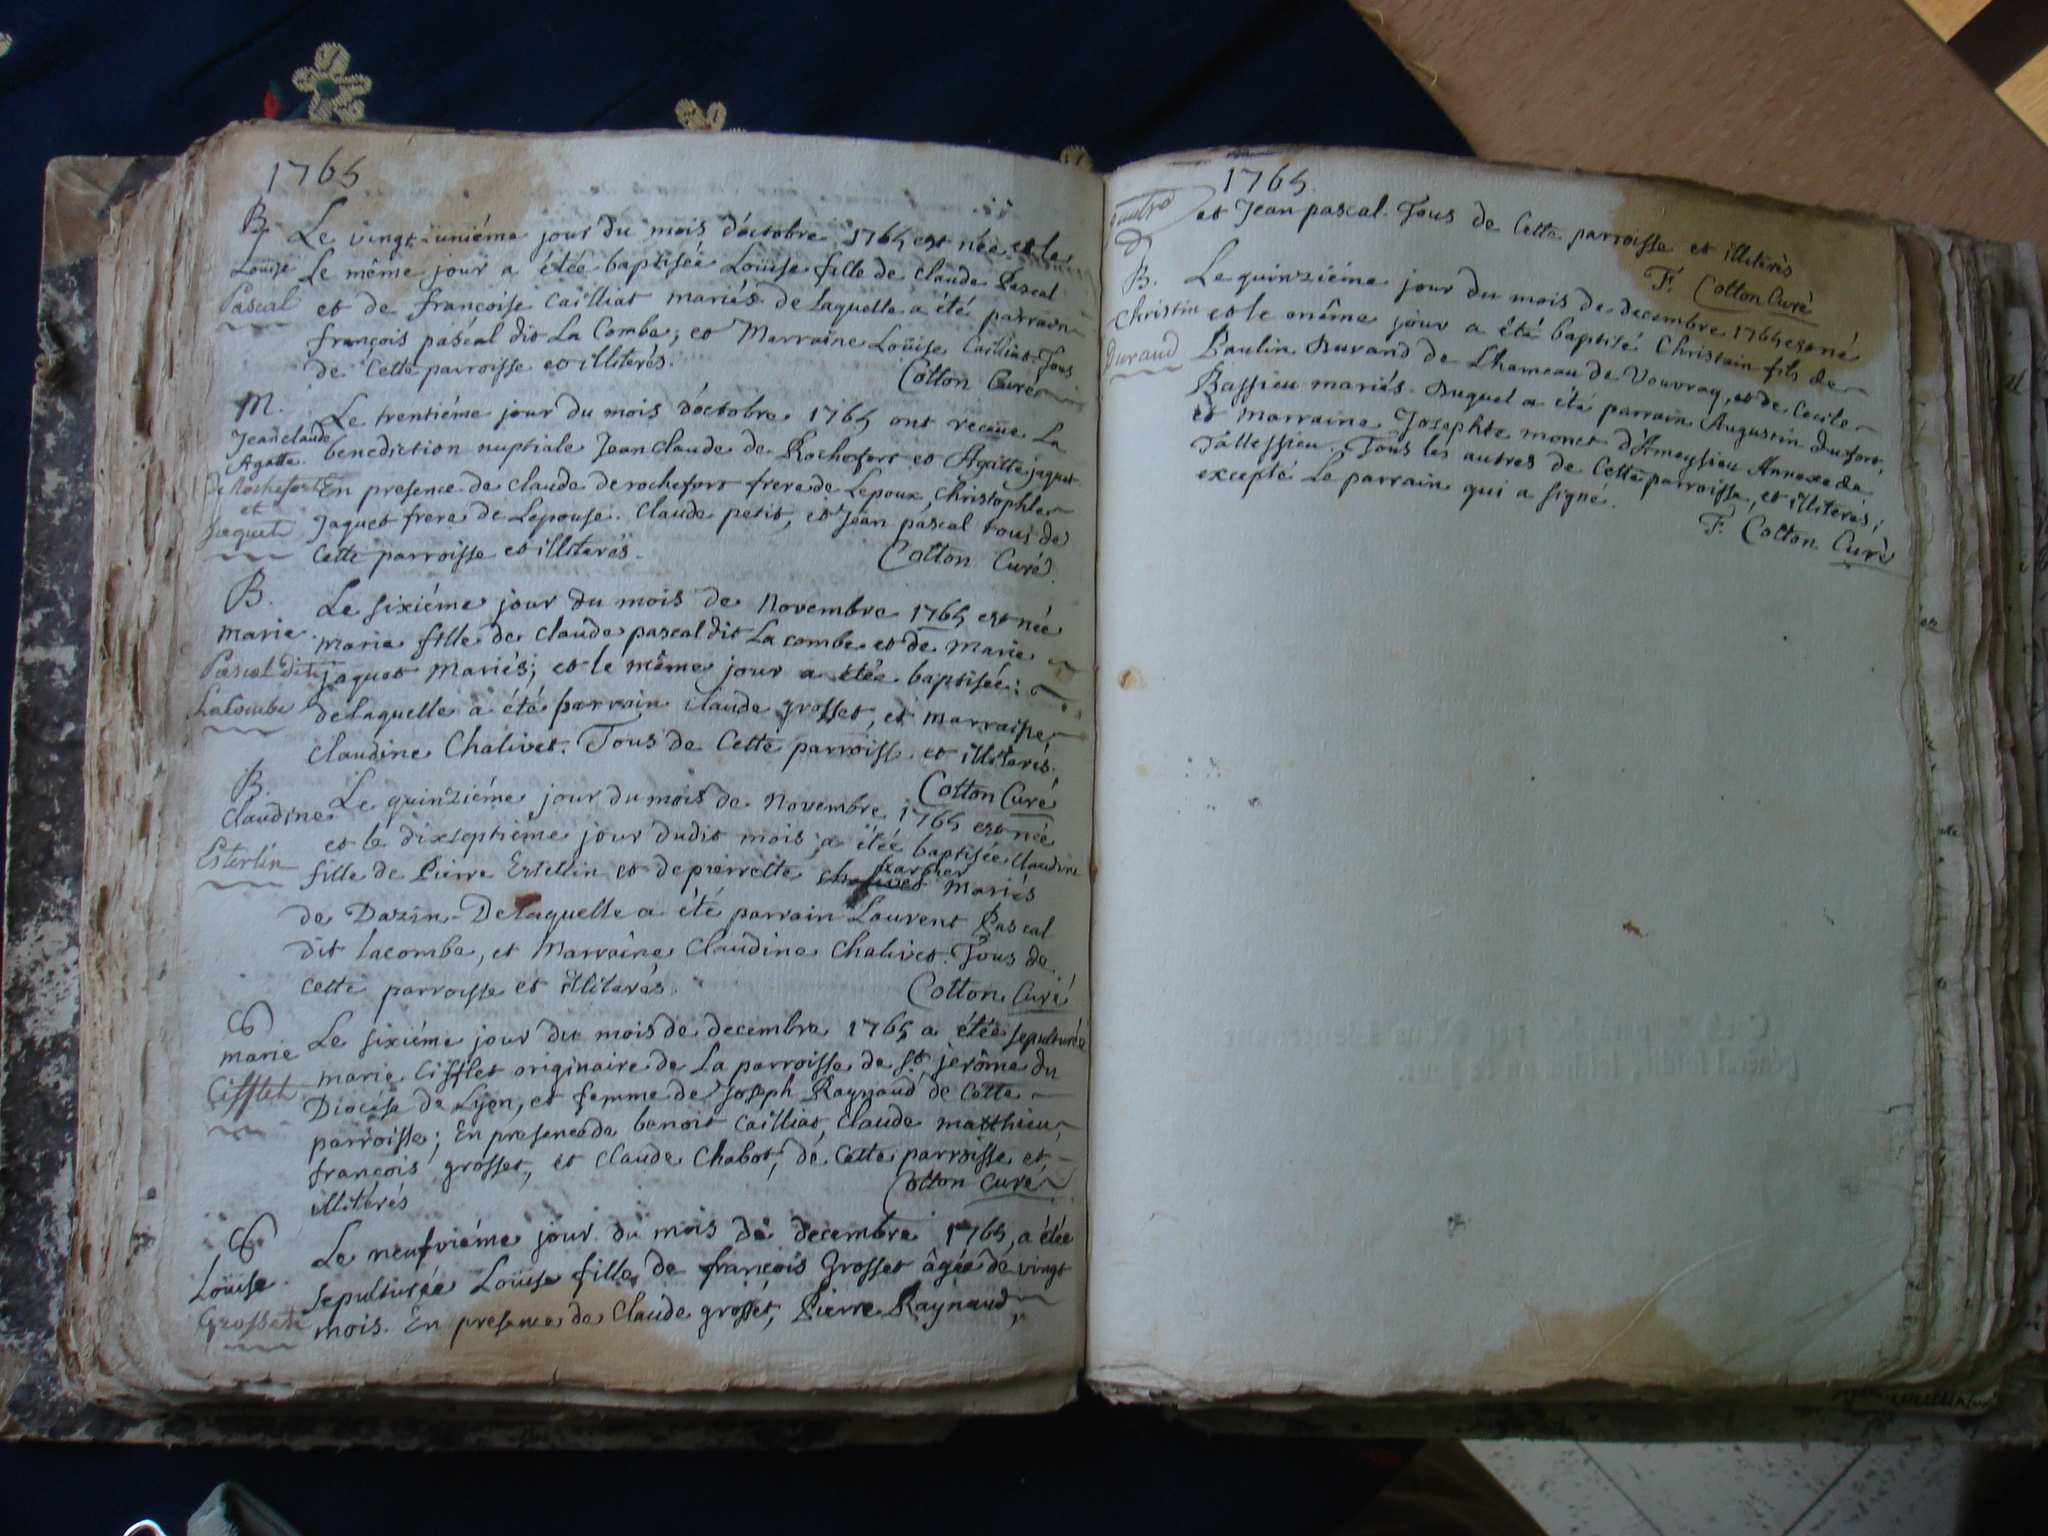 1765
B.
Loüise
Pascal
Le vingt-uniéme jour du mois d'octobre 1765 est née et le
Le même jour a étée baptisée Loüise fille de claude Pascal
et de françoise Cailliat mariés. de laquelle a été parrain
françois pascal dit La Combe; et Marraine Loüise Cailliat. Tous
de Cette parroisse et illiterés.
Cotton Curé
M.
Jean claude
Agatte
De Rochefort
et
Jaquet
Le trentiéme jour du mois d'octobre 1765 ont recüe La
benediction nuptiale Jean Claude de Rochefort et Agatte jaquet
En presence de claude de rochefort frere de Lepoux, Christophle
Jaquet frere de Lepouse. Claude petit, et Jean pascal tous de
Cette parroisse et illiterés.
Cotton Curé
B.
Marie
Pascal dit
LaCombe
Le sixiéme jour du mois de Novembre 1765 est née
marie fille de claude pascal dit La combe et de Marie
jaquet Mariés; et le même jour a étée baptisée:
de laquelle a été parrain claude grosset, et marraine
Claudine Chalivet. Tous de Cette parroiss. et illiterés.
Cotton Curé
B.
Claudine
Esterlin
Le quinziéme jour du mois de Novembre 1765 est née
et le dixseptiéme jour dudit mois a étée baptisée Claudine
fille de Pierre Estellin et de pierrette chalivet barbier Mariés
de Dazin. De laquelle a été parrain Laurent Pascal
dit lacombe, et Marraine Claudine Chalivet. Tous de
cette parroisse et illiterés.
Cotton Curé
marie
Cifflet
Le sixiéme jour du mois de decembre 1765 a étée sepulturée
marie Cifflet originaire de La parroisse de St. jerôme du
Diocése de Lyon, et femme de Joseph Raynaud de Cette
parroisse; En presence de benoit Cailliat, Claude matthieu,
françois grosset, et Claude Chabot, de Cette parroisse et
illiterés
Cotton Curé
Loüise
Grosset
Le neufviéme jour du mois de decembre 1765, a étée
sepulturée Loüise fille de françois Grosset âgée de vingt
mois. En presence de Claude grosset, Pierre Raynaud,
1765.
et Jean pascal. Tous de Cette parroisse et illiterés
F. Cotton Curé
B.
Christin
Durand
Le quinziéme jour du mois de decembre 1765 est né
et le même jour a été baptisé Christain fils de
Paulin Durand de Lhameau de Vouvray, et de Cecile
Bassieu mariés. Duquel a été parrain Augustin dufort,
et Marraine Josephte monet d'Ameysieu Annexe de
Tallessieu. Tous les autres de Cette parroisse, et illiterés;
excepté Le parrain qui a signé.
F. Cotton Curé